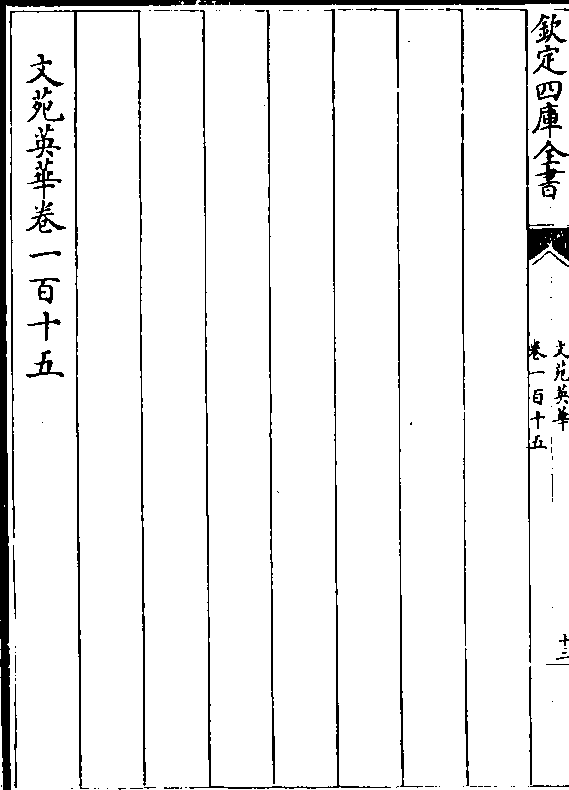 欽定四庫全書
文苑英華
卷一百十五
十三
文苑英華卷一百十五